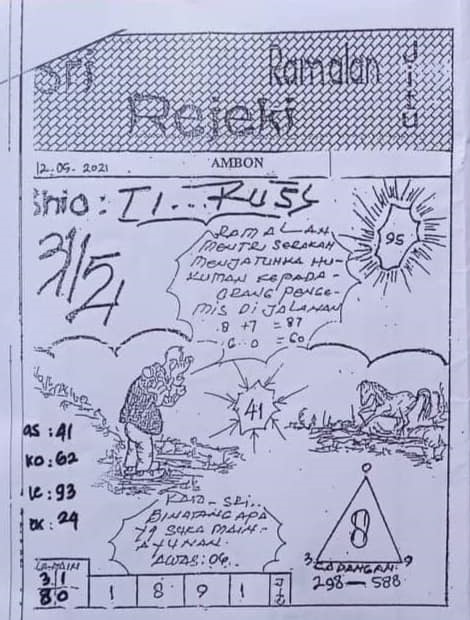 Sri
Ramalan
Jitu
Rejeki
12.05.2021
AMBON
Shio : TI...RUSY
RAMALAN
MENTRI SERAKAH
MENJATUHKA HU-
KUMAN KEPADA-
ORANG PENGE-
MIS DI JALANAN
8 +7 = 87
6..0 = 60
95
41
AS : 41
KO : 62
KE : 93
EK : 24
KATO-SRI..
BINATANG APA
YG SUKA MAIN-
AYUNAN.
AWAS: 06.
0
8
3
9
CADANGAN
298 — 588
LA-MAIN
3 1
8 0
1 8 9 1